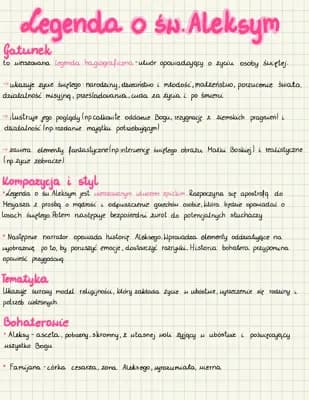 Legenda o św. Aleksym
Gatunek
to wierszowana legenda hagiograficzna - utwór opowiadający o życiu osoby świętej.
→ ukazuje życie świętego: narodziny, dzieciństwo i młodość, małżeństwo, porzucenie świata,
działalność misyjną, prześladowania, cuda za życia i po śmierci
→ ilustruje jego poglądy (np. całkowite oddanie Bogu, rezygnację z ziemskich pragnień) i
działalność (np. rozdanie majątku potrzebującym)
→ zawiera elementy fantastyczne (np. interwencję świętego obrazu Matki Boskiej) i realistyczne
(np. życie żebracze)
Kompozycja i styl
• Legenda o św. Aleksym jest wierszowanym utworem epickim. Rozpoczyna się apostrofą do
Mesyjasza z prośbą o mądrość i odpuszczenie grzechów osobie, która będzie opowiadać o
losach świętego. Potem następuje bezpośredni zwrot do potencjalnych słuchaczy
• Następnie narrator opowiada historię Aleksego. Wprowadza elementy oddziałujące na
wyobraźnię po to, by poruszyć emocje, dostarczyć rozrywki. Historia bohatera przypomina
opowieść przygodową
Tematyka
Ukazuje surowy model religijności, który zakłada życie w ubóstwie, wyrzeczenie się rodziny i
potrzeb cielesnych
Bohaterowie
• Aleksy - asceta, pobożny, skromny, z własnej woli żyjący w ubóstwie i poświęcający
wszystko Bogu
• Famijana - córka cesarza, żona Aleksego, wyrozumiała, wierna